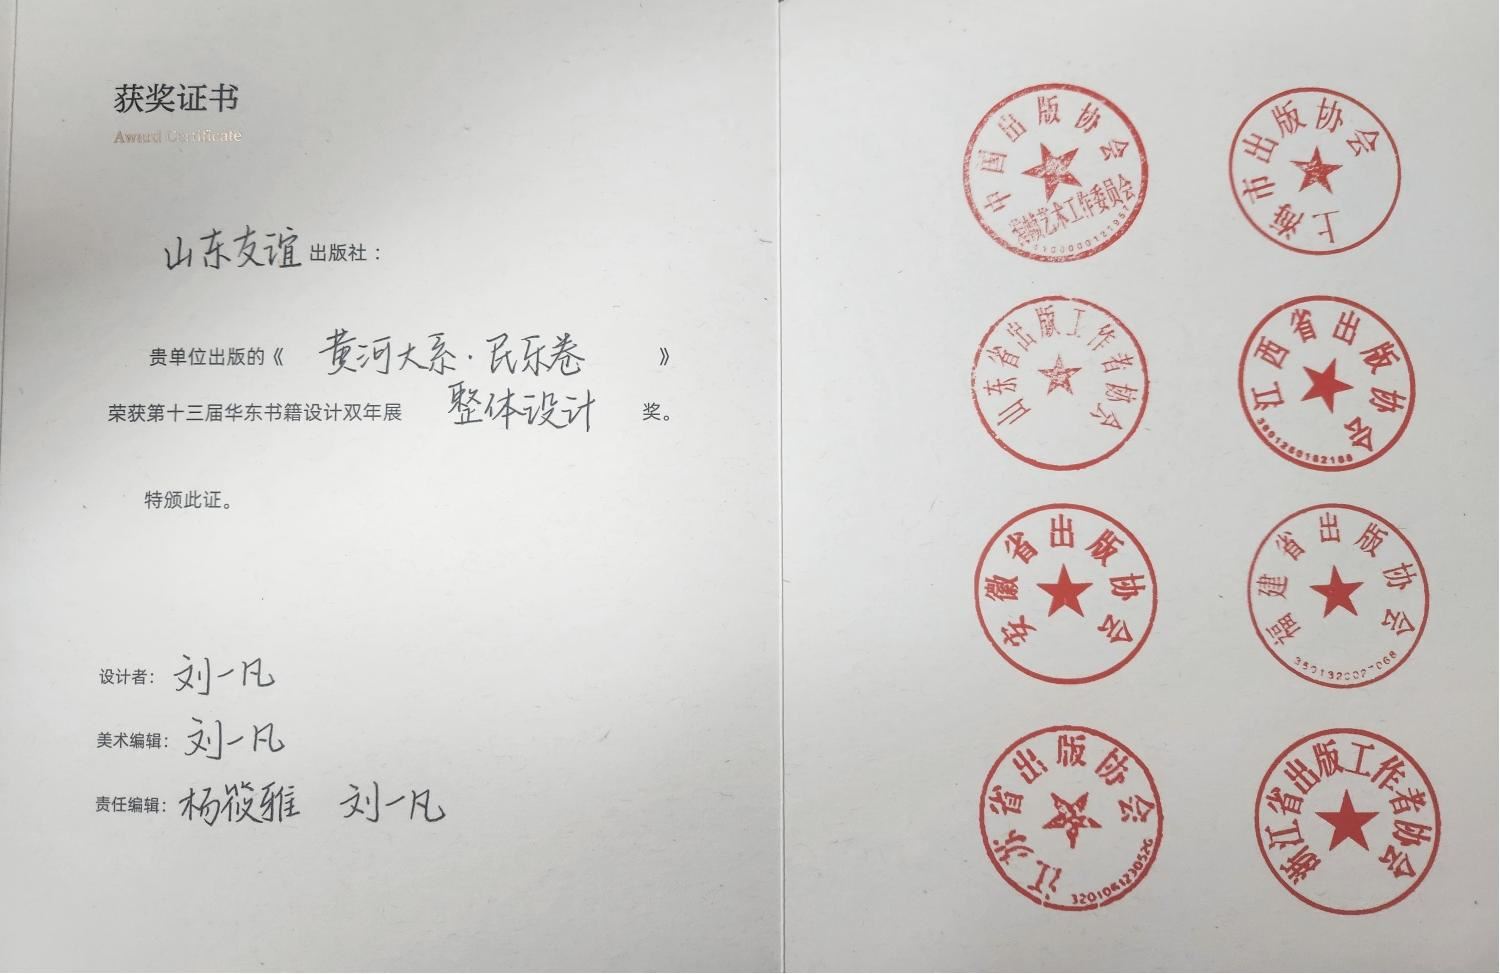 获奖证书
Award Certificate
山东友谊出版社：
贵单位出版的《 黄河大系·民乐卷 》
荣获第十三届华东书籍设计双年展 整体设计 奖。
特颁此证。
设计者：刘一凡
美术编辑：刘一凡
责任编辑：杨筱雅 刘一凡
中国出版协会
装帧艺术工作委员会
上海市出版协会
山东省出版工作者协会
江西省出版协会
安徽省出版协会
福建省出版协会
江苏省出版协会
浙江省出版工作者协会